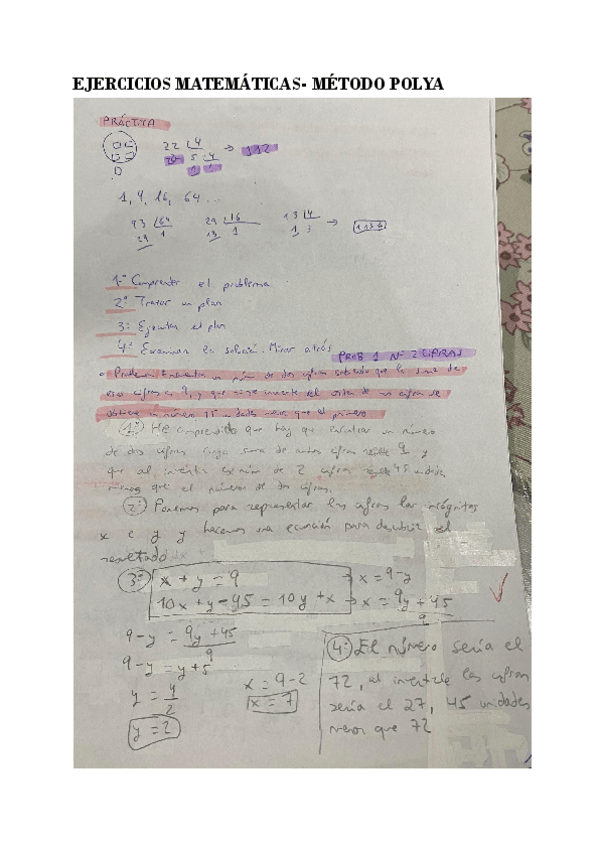 EJERCICIOS MATEMÁTICAS- MÉTODO POLYA
PRÁCTICA
22 4 → 112
20 5 4
1, 4, 16, 64...
93 64 29 16 13 4 → 1136
29 1 13 1 1 3
1º Comprender el problema
2º Trazar un plan
3º Ejecutar el plan
4º Examinar la solución. Mirar atrás
PROB 1 Nº 2 CIFRAS
Problema: Encuentra un núm. de dos cifras sabiendo que la suma de
esas cifras es 9, y que si se invierte el orden de sus cifras se
obtiene un número 45 unidades menor que el primero
1º He comprendido que hay que encontrar un número
de dos cifras cuya suma de ambas cifras 9 y
que al invertir ese núm de 2 cifras 45 unidades
menos que el número de dos cifras.
2º Ponemos para representar las cifras las incógnitas
x e y y hacemos una ecuación para deducir el
resultado
3º x + y = 9 → x = 9-y
10x + y - 45 = 10y + x → x = 9y + 45
9
9 - y = 9y + 45
9
9 - y = y + 5
y = 4
2
y = 2
x = 9 - 2
x = 7
4º El número sería el
72, al invertirle las cifras
sería el 27, 45 unidades
menor que 72